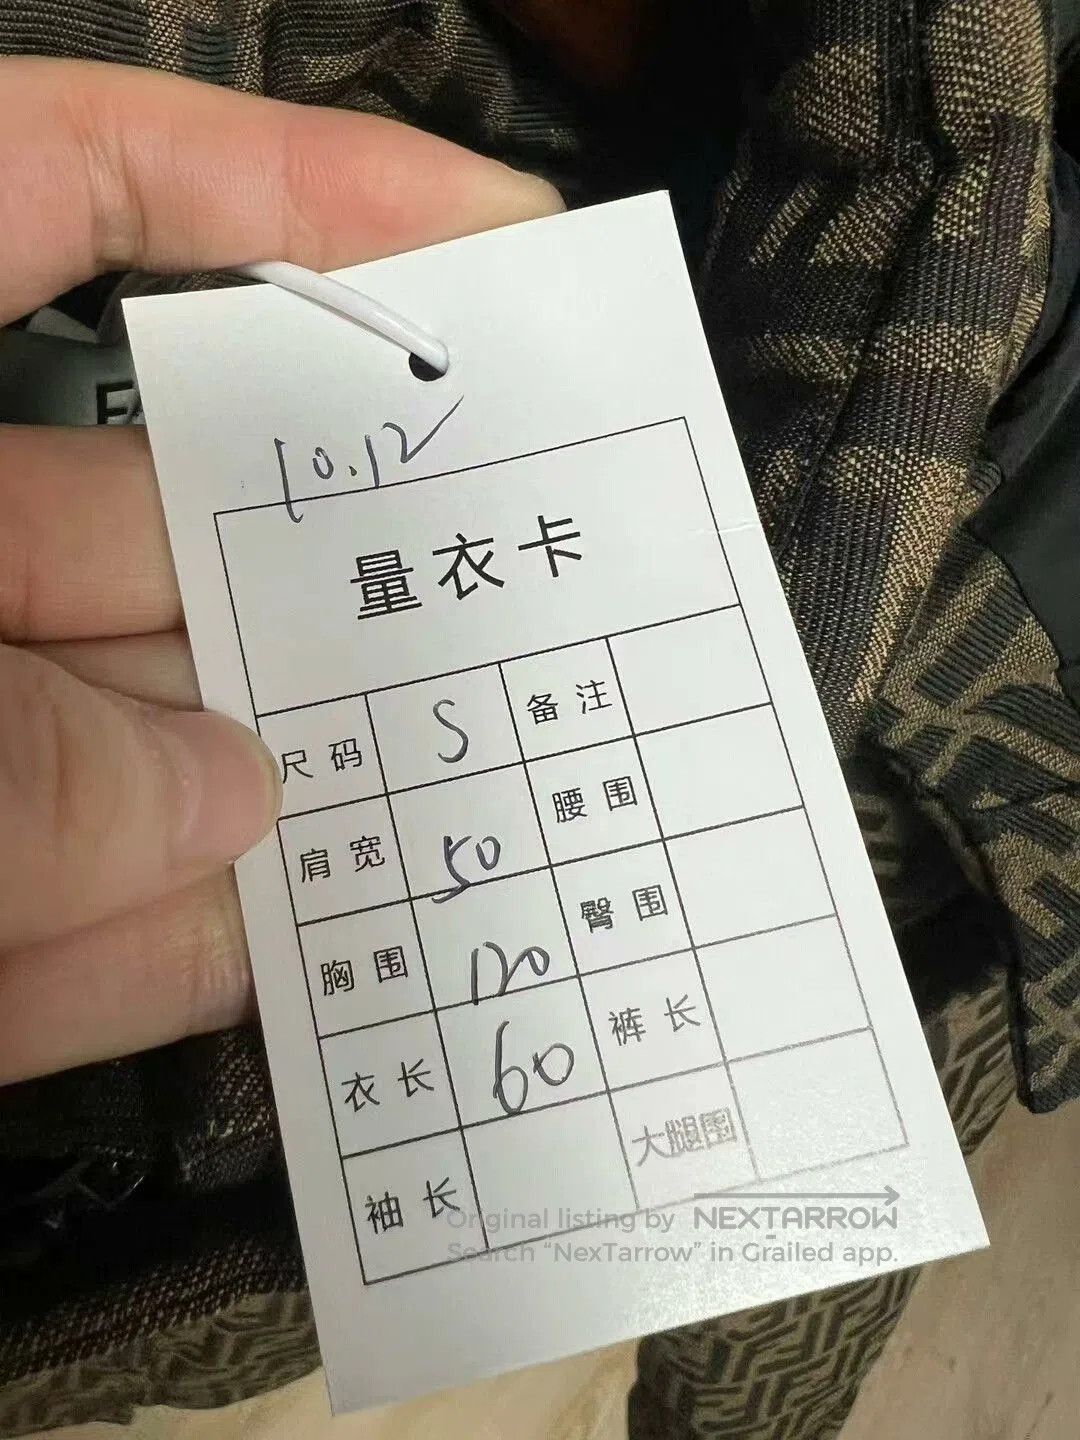 10.12
量衣卡
尺码 S 备注
肩宽 50 腰围
胸围 120 臀围
衣长 60 裤长
袖长 大腿围
Original listing by NEXTARROW
Search “NexTarrow” in Grailed app.